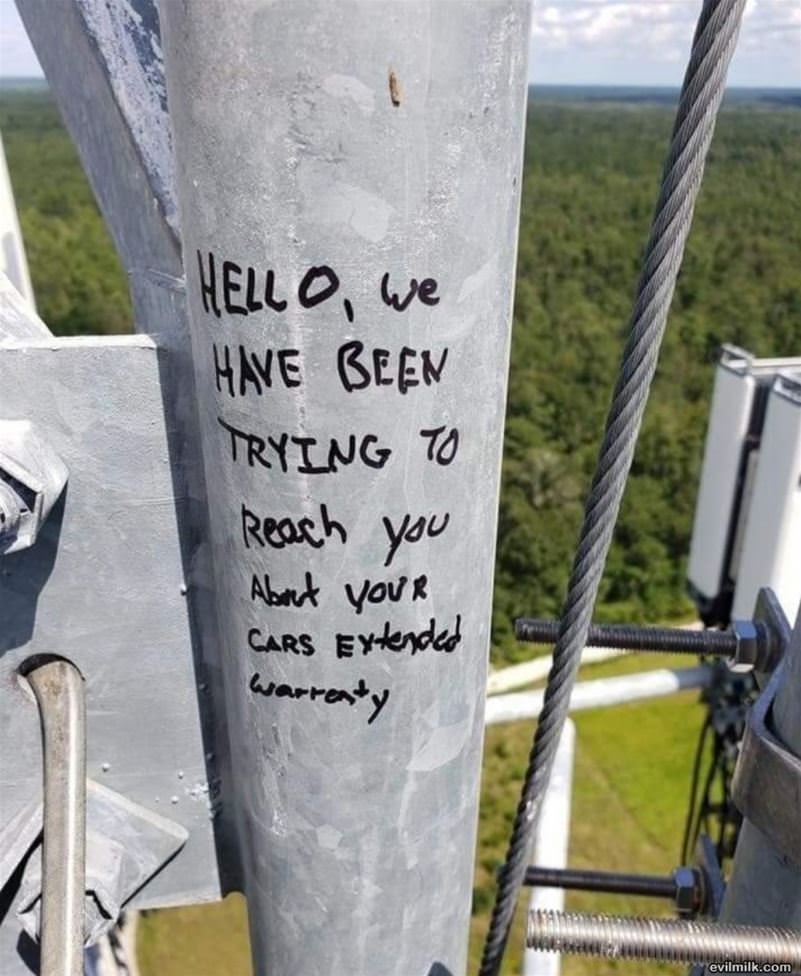 HELLO, we
HAVE BEEN
TRYING TO
Reach you
About YOUR
CARS Extended
warranty
evilmilk.com